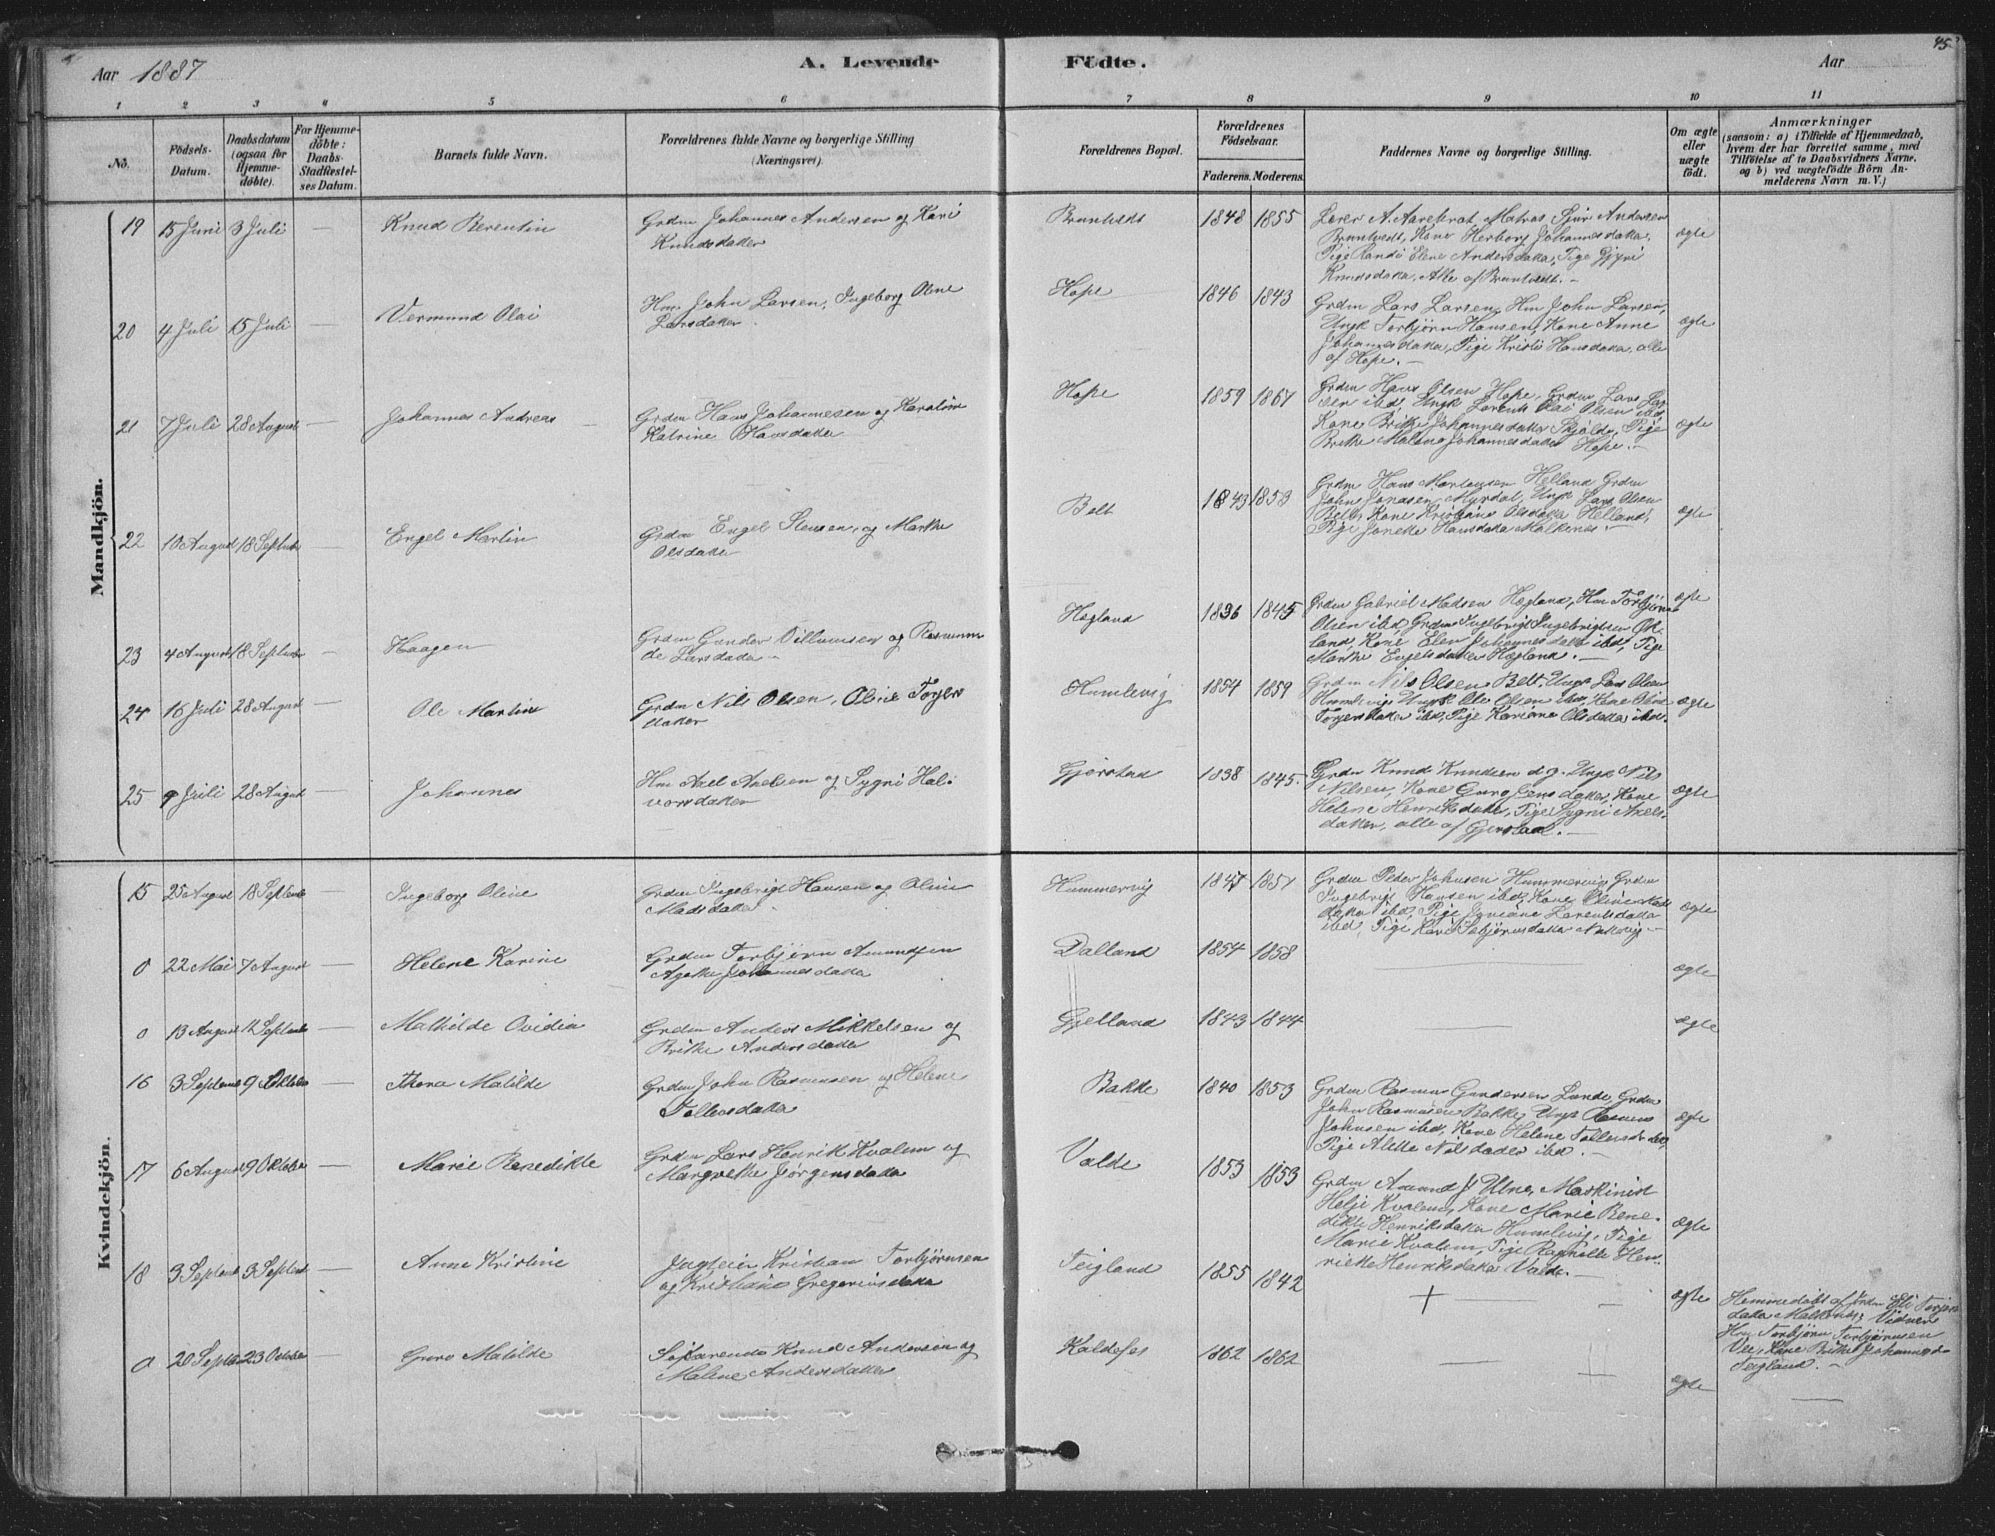 Aar 1887
A. Levende
Födte.
Aar
45
1 2 3 4 5 6 7 8 9 10 11
No.
Födsels-
Datum.
Daabsdatum
(ogsaa for
Hjemme-
döbte).
For Hjemme-
döbte:
Daabs-
Stadfæstel-
ses Datum.
Barnets fulde Navn.
Forældrenes fulde Navne og borgerlige Stilling
(Næringsvei).
Forældrenes Bopæl.
Forældrenes
Födselsaar.
Faderens. Moderens.
Faddernes Navne og borgerlige Stilling.
Om ægte
eller
uægte
födt.
Anmærkninger
(saasom: a) i Tilfælde af Hjemmedaab,
hvem der har forrettet samme, med
Tilföielse af to Daabsvidners Navne.
og b) ved uægtefödte Börn An-
melderens Navn m. V.)
Mandkjön.
19 15 Juni 3 Juli — Knud Berentin
Grdm Johannes Andersen og Kari
Knudsdatter
Bruntvedt 1848 1855
Lærer A. Aarekrat Matras Sjur Andersen
Bruntvedt, Kone Herborg Johannesdatter,
Pige Randi Elene Andersdatter, Pige
Knudsdatter, Alle af Bruntvedt. —
ægte
20 4 Juli 15 Juli — Vermund Olai
Hm. John Larsen, Ingeborg Oline
Larsdatter
Hope 1846 1843
Grdm Lars Larsen, Hm John Larsen,
Ungk Torbjørn Hansen, Kone Anne
Johannesdatter, Pige Kristi Hansdatter, alle
af Hope. —
ægte
21 7 Juli 28 August — Johannes Andreas
Grdm Hans Johannesen og Karoline
Katrine Hansdatter
Hope 1859 1861
Grdm Hans Olsen Hope, Grdm Lars Lar
sen ibd, Ungk Lorents Olai Olsen ibd,
Kone Brithe Johannesdatter Skjolde, Pige
Brithe Malene Johannesdatter Hope. —
ægte
22 10 August 18 Septbr — Engel Martin
Grdm Engel Steusen, og Marthe
Olsdatter
Belt 1843 1853
Grdm Hans Mortensen Helland Grdm
John Jonasen Myrdal, Ungk Lars Olsen
Belt, Kone Kristiane Olsdatter Helland,
Pige Janeke Hansdatter Malkenes. —
ægte
23 4 August 18 Septbr — Haagen
Grdm Gunder Villumsen og Rasmun
de Larsdatter
Hægland 1836 1845
Grdm Gabriel Madsen Hægland, Hm Torbjørn
Olsen ibd, Grdm Ingebrigt Ingebrigtsen Øk-
land, Kone Elen Johannesdatter ibd, Pige
Marthe Engelsdatter Hægland. —
ægte
24 16 Juli 28 August — Ole Martin
Grdm Nils Olsen, Oline Torjers
datter
Humlevig 1854 1859
Grdm Nils Olsen Belt, Ungk Lars Olsen
Humlevig, Ungk Ole Olsen ibd, Kone Oline
Torjersdatter ibd, Pige Kariane Olsdatter ibd.
ægte
25 9 Juli 28 August — Johannes
Hm Axel Axelsen og Sygni Hal-
vorsdatter
Gjerstad 1838 1845.
Grdm Knud Knudsen d.y. Ungk Nils
Nilsen, Kone Guro Jensdatter, Kone
Helene Henriksdatter, Pige Sygni Axels-
datter, alle af Gjerstad. —
ægte
Kvindekjön.
15 25 August 18 Septbr — Ingeborg Oline
Grdm Ingebrigt Hansen og Oline
Madsdatter
Hummervig 1847 1851
Grdm Peder Johnsen Hummervig, Grdm
Ingebrigt Hansen ibd, Kone Oline Mads
datter ibd, Pige Janiane Larentsdatter
ibd, Pige Kari Sebjørnsdatter
ægte
0 22 Mai 7 August — Helene Karine
Grdm Torbjørn Amundsen
Agathe Johannesdatter
Dalland 1854 1858 — ægte
0 13 August 12 Septbr — Mathilde Ovidia
Grdm Anders Mikkelsen og
Brithe Andersdatter
Gjelland 1843 1844 — ægte
16 3 Septbr 9 Oktober — Thora Matilde
Grdm John Rasmusen og Helene
Tollersdatter
Bakke 1840 1853
Grdm Rasmus Gundersen Lunde, Grdm
John Rasmusen Bakke, Ungk Rasmus
Johnsen ibd, Kone Helene Tollersdatter ibd,
Pige Alethe Nilsdatter ibd. —
ægte
17 6 August 9 Oktober — Marie Benedikte
Grdm Lars Henrik Kvalem og
Margrethe Jørgensdatter
Valde 1853 1853
Grdm Amund J. Utne, Maskinist
Helje Kvalem, Kone Marie Bene-
dikte Henriksdatter Humlevig, Pige
Marie Kvalem, Pige Ragnilde Hen-
riette Henriksdatter Valde. —
ægte
18 3 Septbr 3 Septbr — Anne Kristine
Jagteier Kristian Torbjørnsen
og Kristiane Gregoriusdatter
Teigland 1855 1842 + — ægte
Hemmedøbt af Jrdm Eli Torjers
datter Malkenes; Vidner
Hm Torbjørn Torbjørnsen
Vee, Kone Brithe Johannesd.
Teigland. —
0 20 Septbr 23 Oktober — Guro Matilde
Søfarende Knud Andersen og
Malene Andersdatter
Kaldefos 1862 1862 — + ægte —